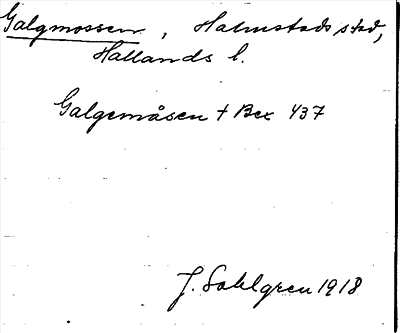 Galgmossen, Halmstads stad,
Hallands l.
Galgemåsen † Bex 437
J. Sahlgren 1918